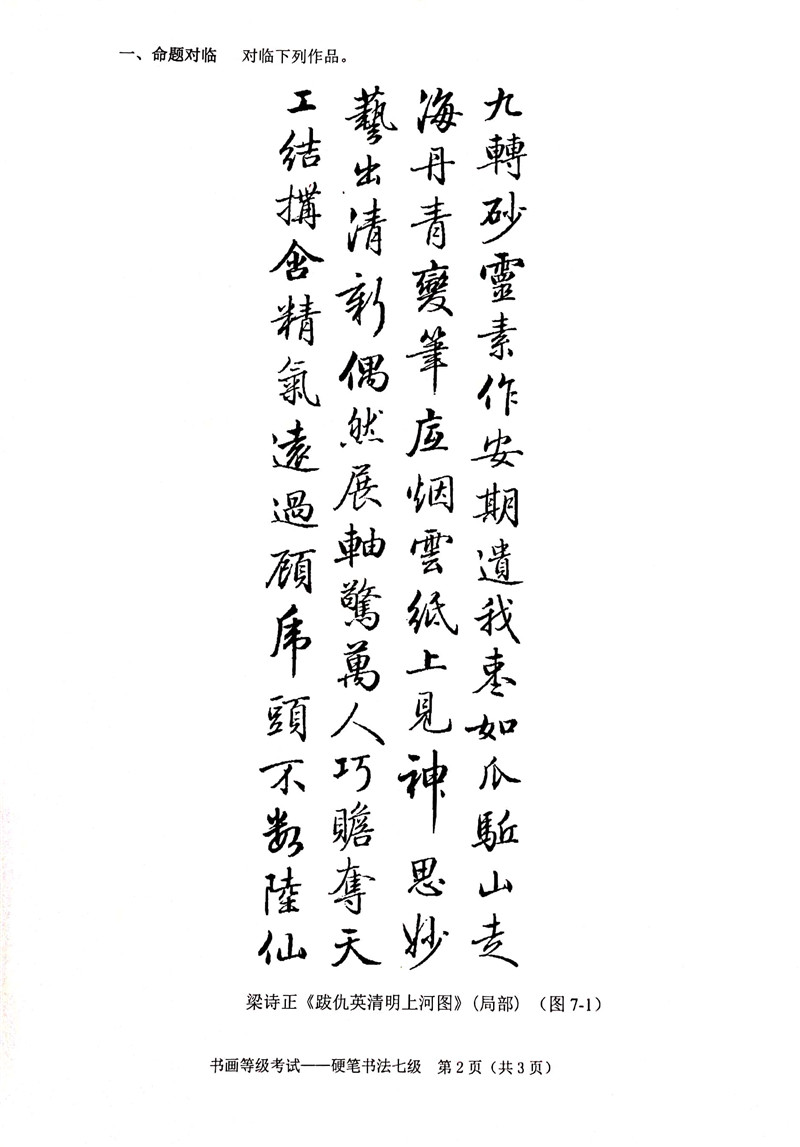 一、命题对临 对临下列作品。
九轉砂靈素作安期遺我枣如瓜駈山走
海丹青變筆底烟雲紙上見神思妙
藝出清新偶然展軸驚萬人巧贍奪天
工結搆含精氣遠過顾虎頭不数陸仙
梁诗正《跋仇英清明上河图》(局部) (图7-1)
书画等级考试——硬笔书法七级 第2页(共3页)